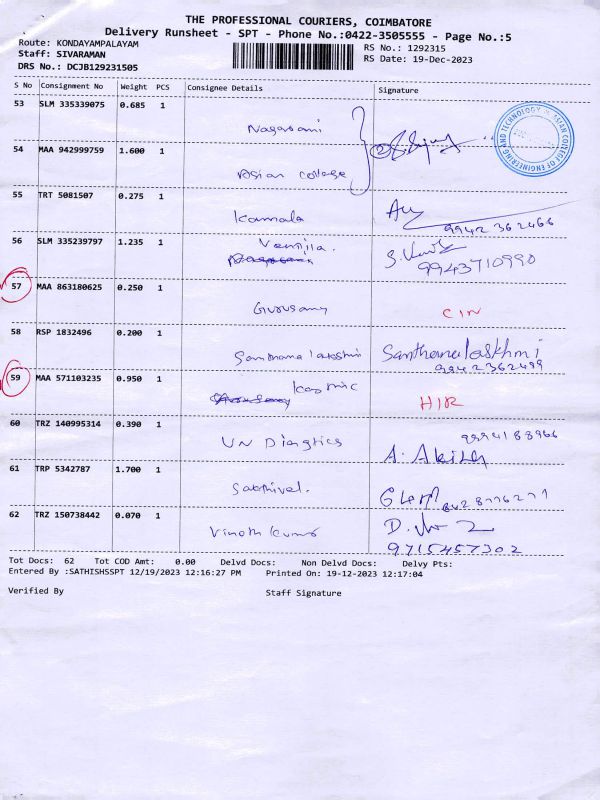 THE PROFESSIONAL COURIERS, COIMBATORE
Delivery Runsheet - SPT - Phone No.:0422-3505555 - Page No.:5
Route: KONDAYAMPALAYAM
RS No.: 1292315
Staff: SIVARAMAN
RS Date: 19-Dec-2023
DRS No.: DCJB129231505
S No Consignment No Weight PCS Consignee Details Signature
53 SLM 335339075 0.685 1
Nagasami
ASIAN COLLEGE OF ENGINEERING AND TECHNOLOGY
54 MAA 942999759 1.600 1
Asian college
55 TRT 5081507 0.275 1
Kamala
9942 362466
56 SLM 335239797 1.235 1
9943710990
57 MAA 863180625 0.250 1
Gurusamy CIN
58 RSP 1832496 0.200 1
Santhana lakshmi Santhanalaskhmi
9942362499
59 MAA 571103235 0.950 1
HIR
60 TRZ 140995314 0.390 1
9994188966
61 TRP 5342787 1.700 1
Sakthivel.
62 TRZ 150738442 0.070 1
Vinoth kumar
9715457302
Tot Docs: 62 Tot COD Amt: 0.00 Delvd Docs: Non Delvd Docs: Delvy Pts:
Entered By :SATHISHSSPT 12/19/2023 12:16:27 PM Printed On: 19-12-2023 12:17:04
Verified By Staff Signature